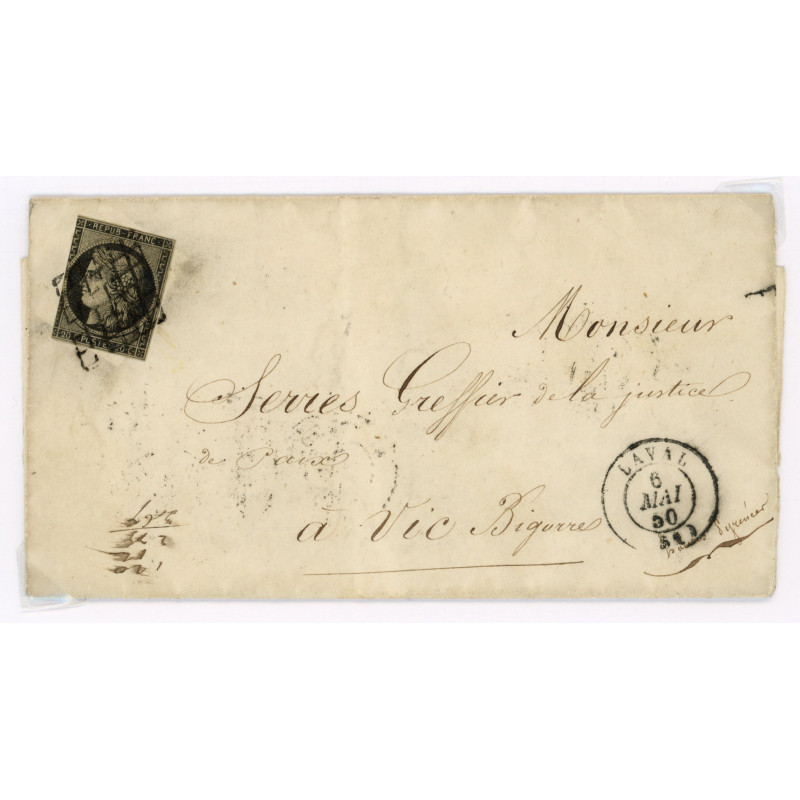 REPUB. FRANC.
20 c POSTE 20 c
Monsieur
Serres, Greffier de la justice
de Paix
à Vic Bigorre
Pyrénées
LAVAL
6
MAI
50